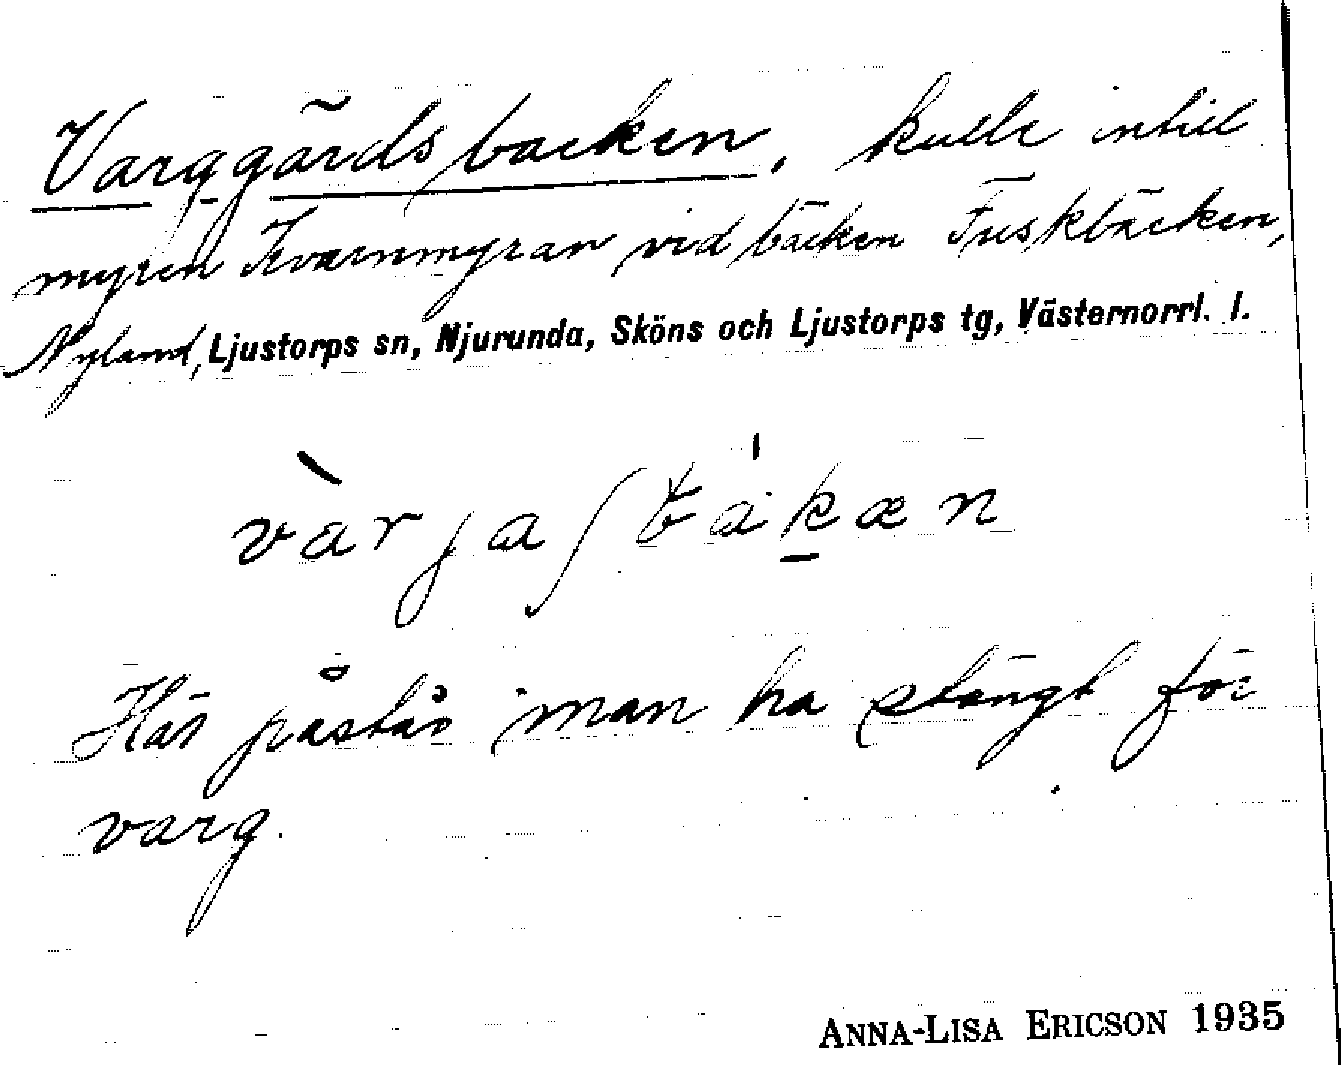 Varggärdsbacken, kulle intill
myren Kvarnmyran vid bäcken Fuskbäcken,
Nyland, Ljustorps sn, Njurunda, Sköns och Ljustorps tg, Västernorrl. l.
Här påstås man ha stängt för
varg.
ANNA-LISA ERICSON 1935